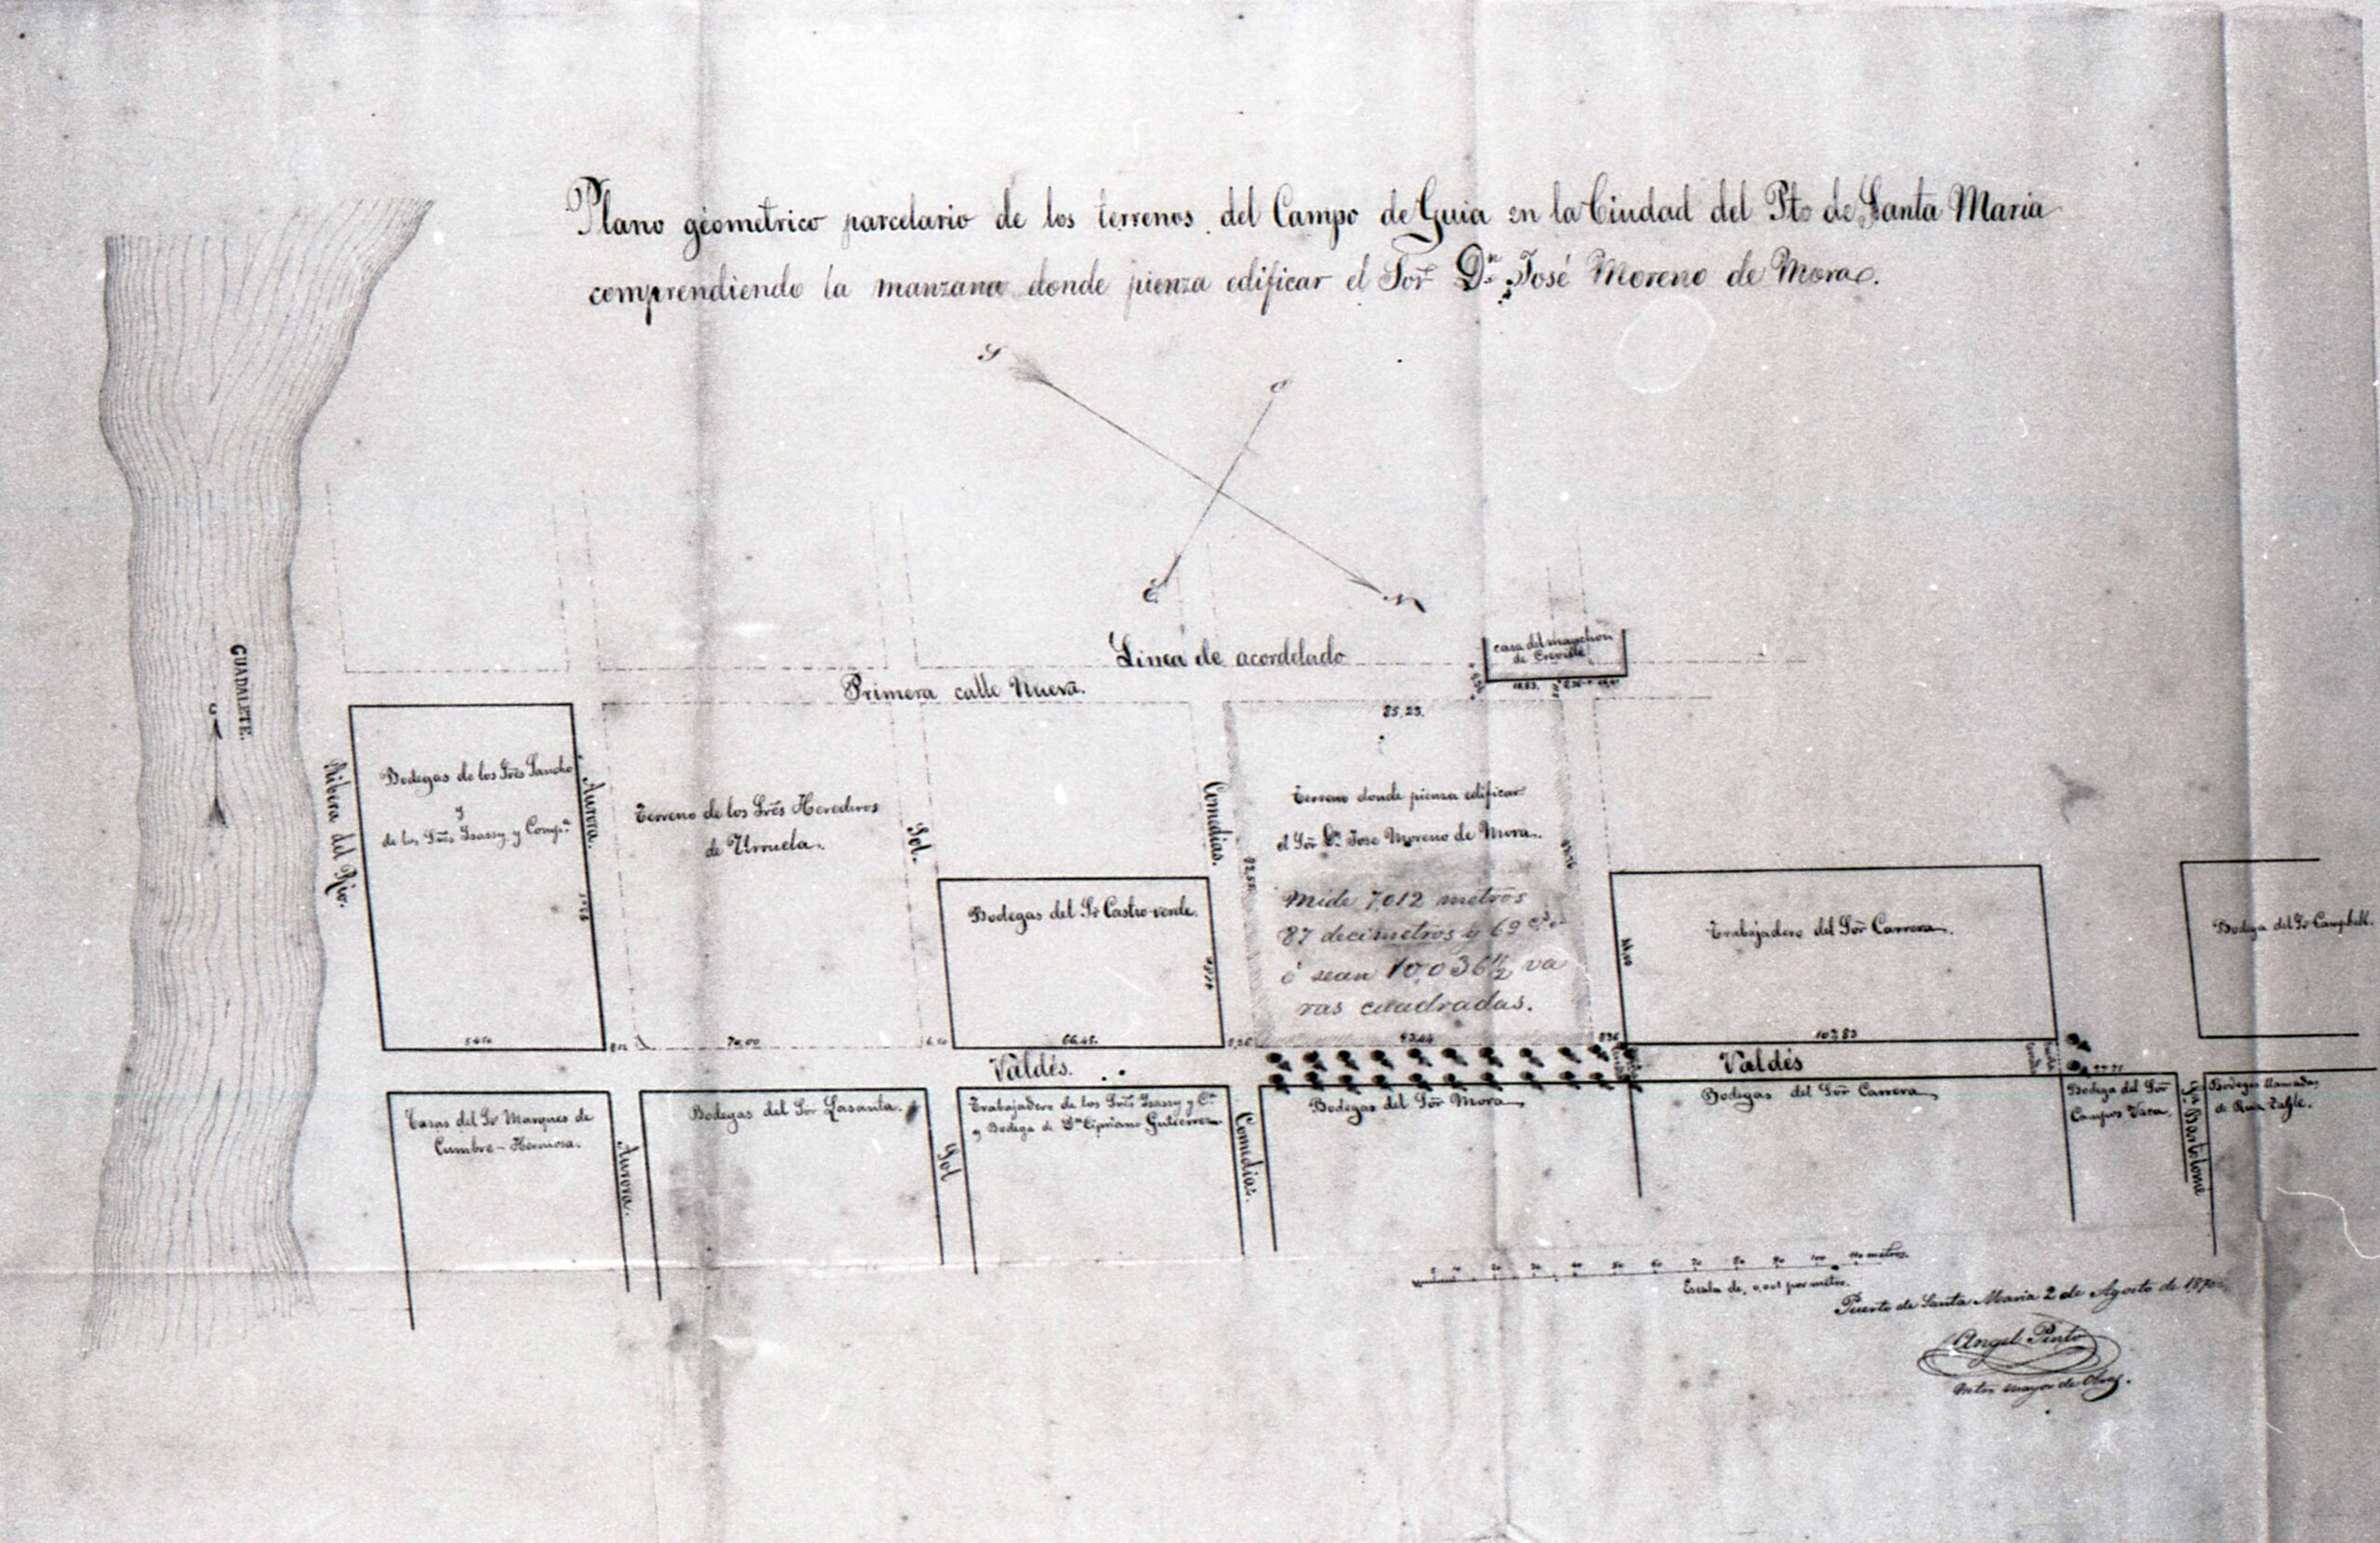 Plano géometrico parcelario de los terrenos del Campo de Guia en la Ciudad del Pto de Santa Maria
comprendiendo la manzana donde pienza edificar el Sor Dn José Moreno de Mora.
S
O
E
N
Linea de acordelado
casa del manchon
de Creville
Primera calle Nueva.
85,23.
GUADALETE.
Ribera del Rio.
Bodegas de los Sres Sancho
y
de los Sres Isassy y Compa
Aurora.
Terreno de los Sres Herederos
de Urruela.
Sol.
Comedias.
Bodegas del Sr Castro-verde.
Terreno donde pienza edificar
el Sor Dn Jose Moreno de Mora.
Mide 7,012 metros
87 decimetros y 69
ó sean 10,036 1/2 va
ras cuadradas.
Trabajadero del Sor Carrera.
Bodega del Sr Campbell.
70,00
66,48.
102,83
Valdés.
Valdés
Casas del Sr Marques de
Cumbre-Hermosa.
Aurora.
Bodegas del Sor Lasanta.
Sol
Trabajadero de los Sres Isassy y Ca
y Bodega de Dn Cipriano Gutierrez
Comedias.
Bodegas del Sor Mora
Bodegas del Sor Carrera
Bodega del Sor
Campos Vaca.
Sn Bartolomé
Bodegas llamadas
de Ruiz Tagle.
10 20 30 40 50 60 70 80 90 100 110 metros.
Escala de, 0,001 por metro.
Puerto de Santa Maria 2 de Agosto de 1870
Angel Pinto
Mtro mayor de Obras.